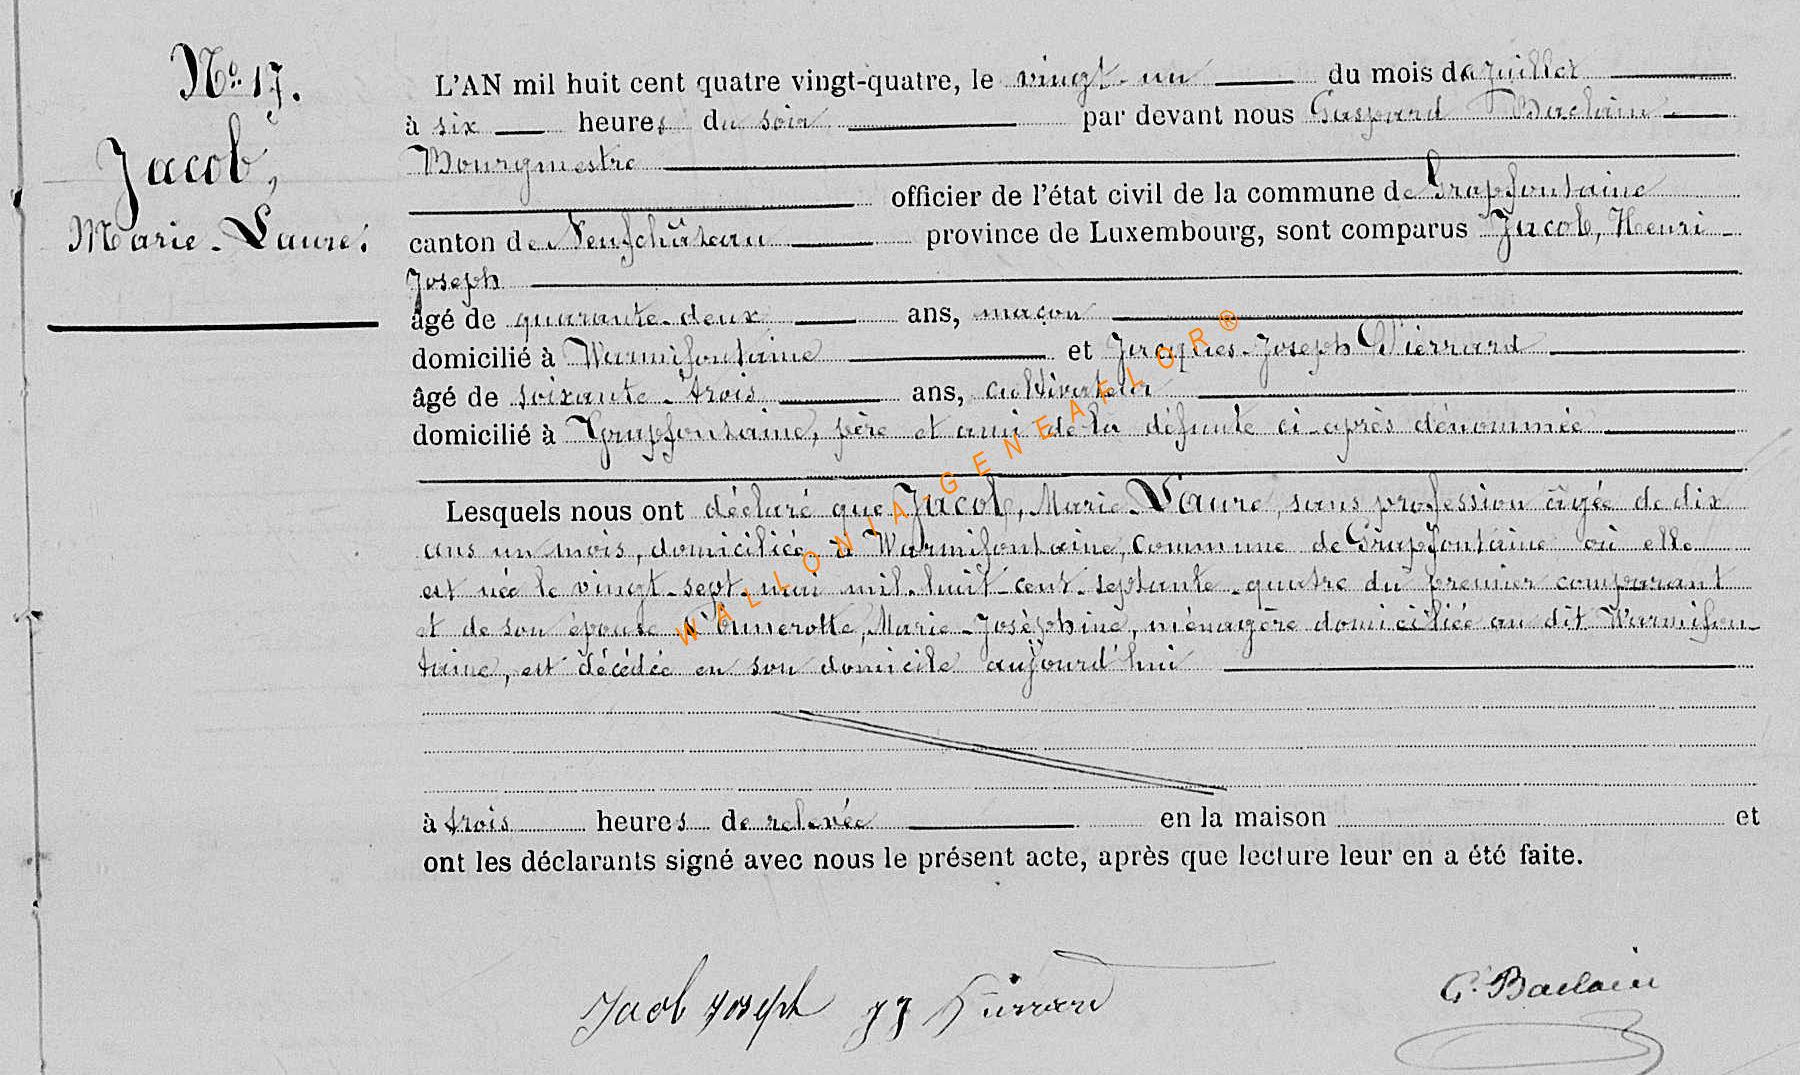 No. 17.
Jacob,
Marie-Laure.
L'AN mil huit cent quatre vingt-quatre, le vingt-un du mois de juillet
à six heures du soir par devant nous Gaspard Baclain
Bourgmestre
officier de l'état civil de la commune de Grapfontaine
canton de Neufchâteau province de Luxembourg, sont comparus Jacob, Henri
Joseph
âgé de quarante-deux ans, maçon
domicilié à Warmifontaine et Jacques-Joseph Pierrard
âgé de soixante-trois ans, cultivateur
domicilié à Grapfontaine, père et ami de la défunte ci-après dénommée
Lesquels nous ont déclaré que Jacob, Marie Laure, sans profession âgée de dix
ans un mois, domiciliée à Warmifontaine, commune de Grapfontaine où elle
est née le vingt-sept mai mil-huit-cent-septante-quatre du premier comparant
et de son épouse Marie-Joséphine, ménagère domiciliée au dit Warmifon-
taine, est décédée en son domicile aujourd'hui
à trois heures de relevée en la maison et
ont les déclarants signé avec nous le présent acte, après que lecture leur en a été faite.
Jacob Joseph JJ Pierrard G. Baclain
WALLONIA-GENEAFLOR®